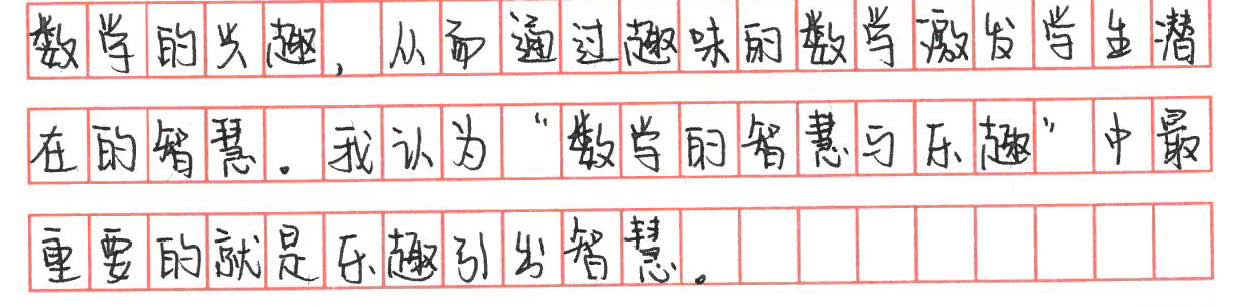 数学的兴趣，从而通过趣味的数学激发学生潜
在的智慧。我认为“数学的智慧与乐趣”中最
重要的就是乐趣引出智慧。